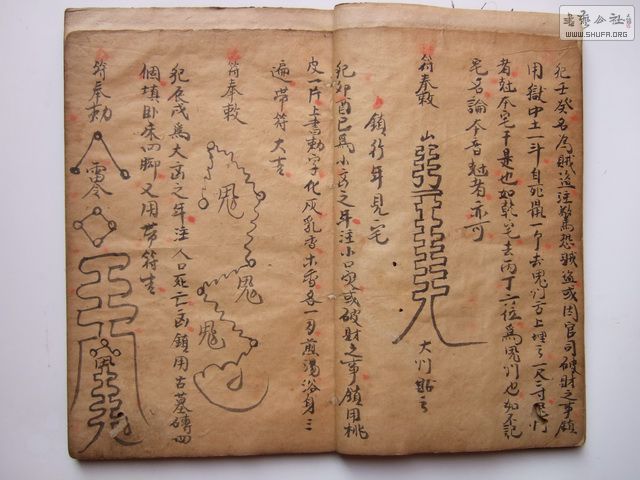 書藝公社
WWW.SHUFA.ORG
犯壬癸名为賊盗注驚恐賊盗或因官司破財之事鎮
用獄中土一斗自死鼠一个去鬼门方上埋之一尺二寸
者尅本宅干是也如乾宅去丙丁六位為鬼门也如不記
宅名論本音尅者亦可
符奉敕
大门貼之
鎮行年見宅
犯卯酉巳為小凶之年注小口或破財之事鎮用桃
皮一片上書勅字化灰乳香木香各一另煎湯浴身三
遍带符大吉
符奉敕
鬼
鬼
鬼
犯辰戌為大凶之年注人口死亡凶鎮用古墓磚四
個填卧床四脚又用带符吉
符奉勅